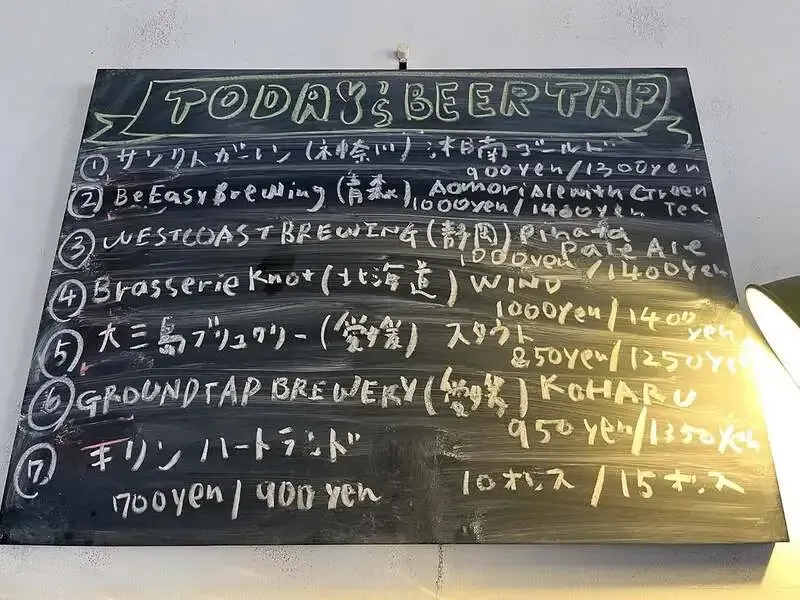 TODAY'S BEER TAP
① サンクトガーレン (神奈川) 湘南ゴールド
900yen/1300yen
② Be Easy Brewing (青森) Aomori Ale with Green
1000yen/1400yen Tea
③ WESTCOAST BREWING (静岡) Pinata
Pale Ale
1000yen/1400yen
④ Brasserie Knot (北海道) WIND
1000yen/1400
yen
⑤ 大三島ブリュワリー (愛媛) スタウト
850yen/1250yen
⑥ GROUNDTAP BREWERY (愛媛) KOHARU
950yen/1350yen
⑦ キリン ハートランド
700yen/900yen 10オンス/15オンス